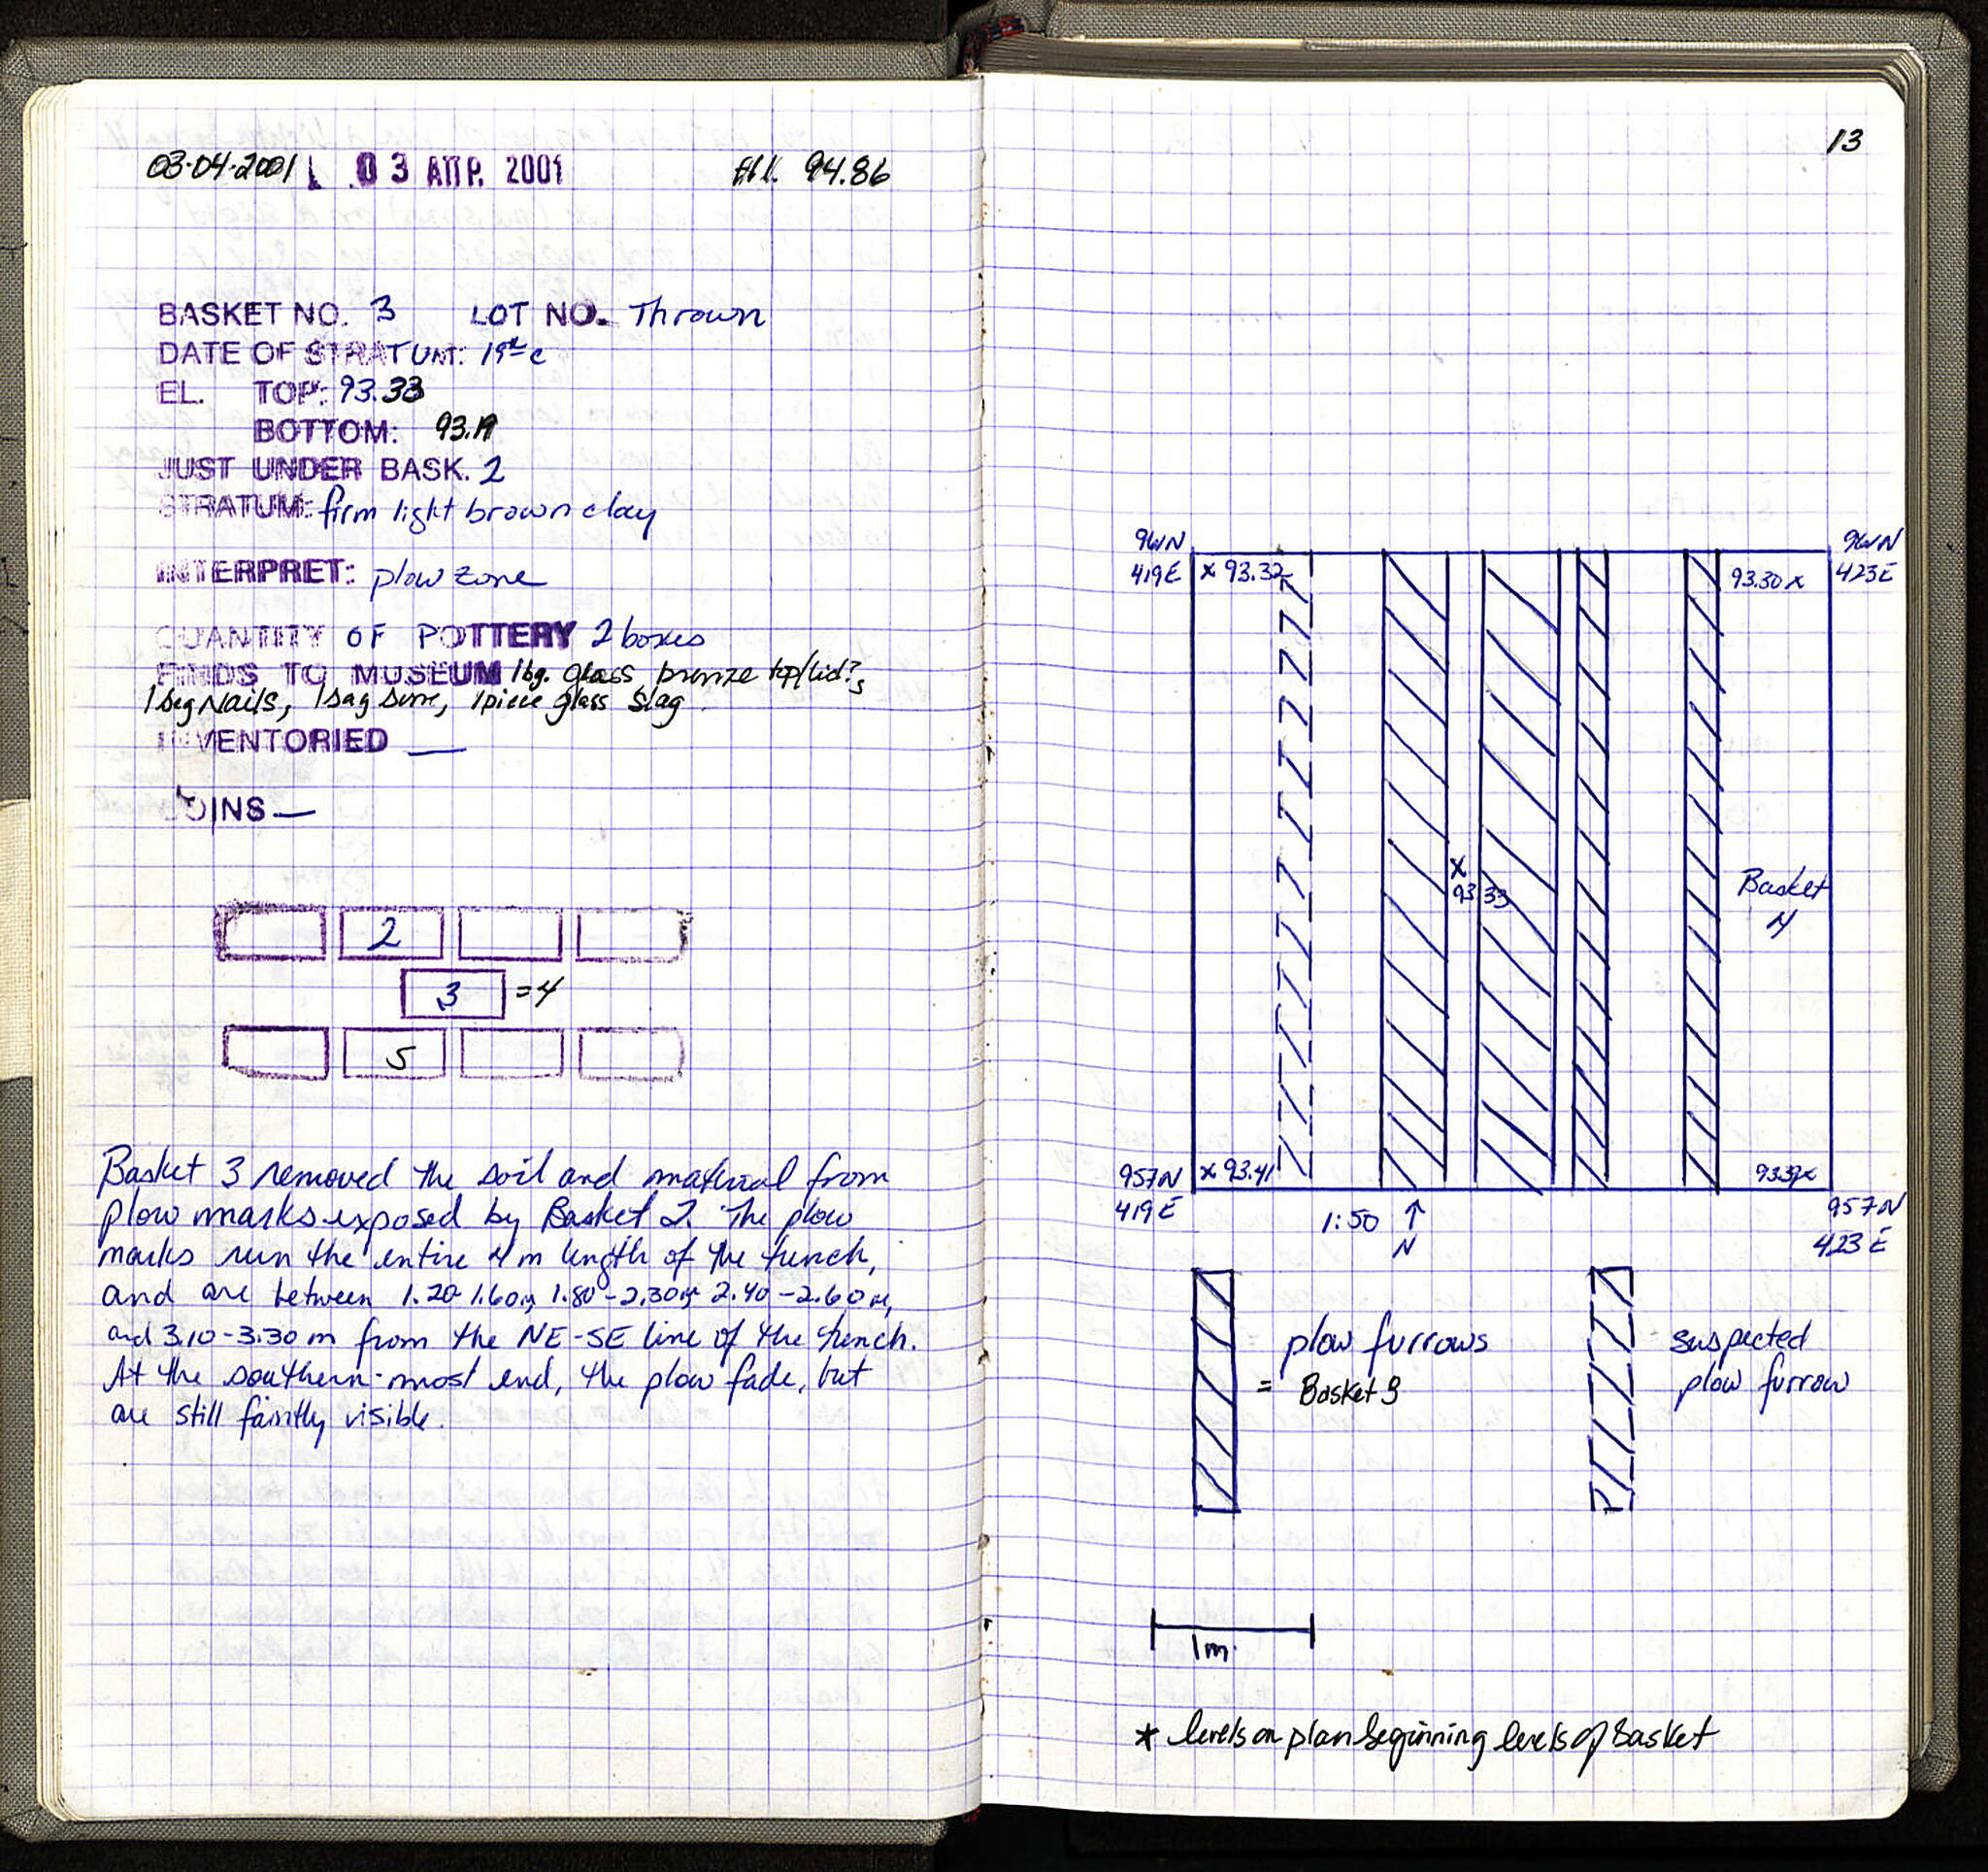 03-04-2001 03 ΑΠΡ. 2001 94.86
BASKET NO. 3 LOT NO. Thrown
DATE OF STRATUM: 19th c
EL. TOP: 93.33
BOTTOM: 93.19
JUST UNDER BASK. 2
STRATUM: firm light brown clay
INTERPRET: plow zone
QUANTITY OF POTTERY 2 boxes
FINDS TO MUSEUM 1 bg. glass, bronze top/lid?,
1 bag Nails, 1 bag bone, 1 piece glass slag
INVENTORIED —
COINS —
2
3 =4
5
Basket 3 removed the soil and material from
plow marks exposed by Basket 2. The plow
marks run the entire 4 m length of the trench,
and are between 1.20-1.60m, 1.80-2.30m, 2.40-2.60m,
and 3.10-3.30 m from the NE-SE line of the trench.
At the southern-most end, the plow fade, but
are still faintly visible.
13
961N 961N
419E x 93.32 93.30 x 423E
x
93.33
Basket
4
957N x 93.41 x
419E 957N
423E
1:50 ↑
N
plow furrows
= Basket 3
suspected
plow furrow
1m
* levels on plan beginning levels of Basket